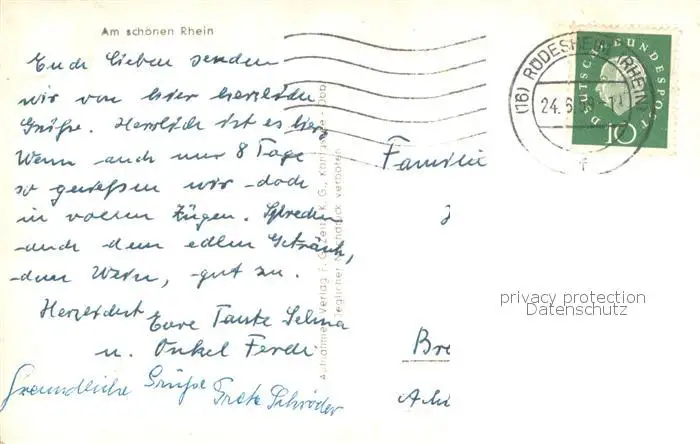 Am schönen Rhein
Euch Lieben senden
wir von hier herzliche
Grüße. Herrlich ist es hier
Wenn auch nur 8 Tage
so genießen wir doch
in vollen Zügen. Sprechen
auch dem edlen Getränk,
dem Wein, gut zu.
Herzlichst
Eure Tante Selma
u. Onkel Ferdi
Freundliche Grüße
Schröder
Familie
Bre
privacy protection
Datenschutz
(16) RÜDESHEIM (RHEIN)
24.6.
f
DEUTSCHE BUNDESPOST
10